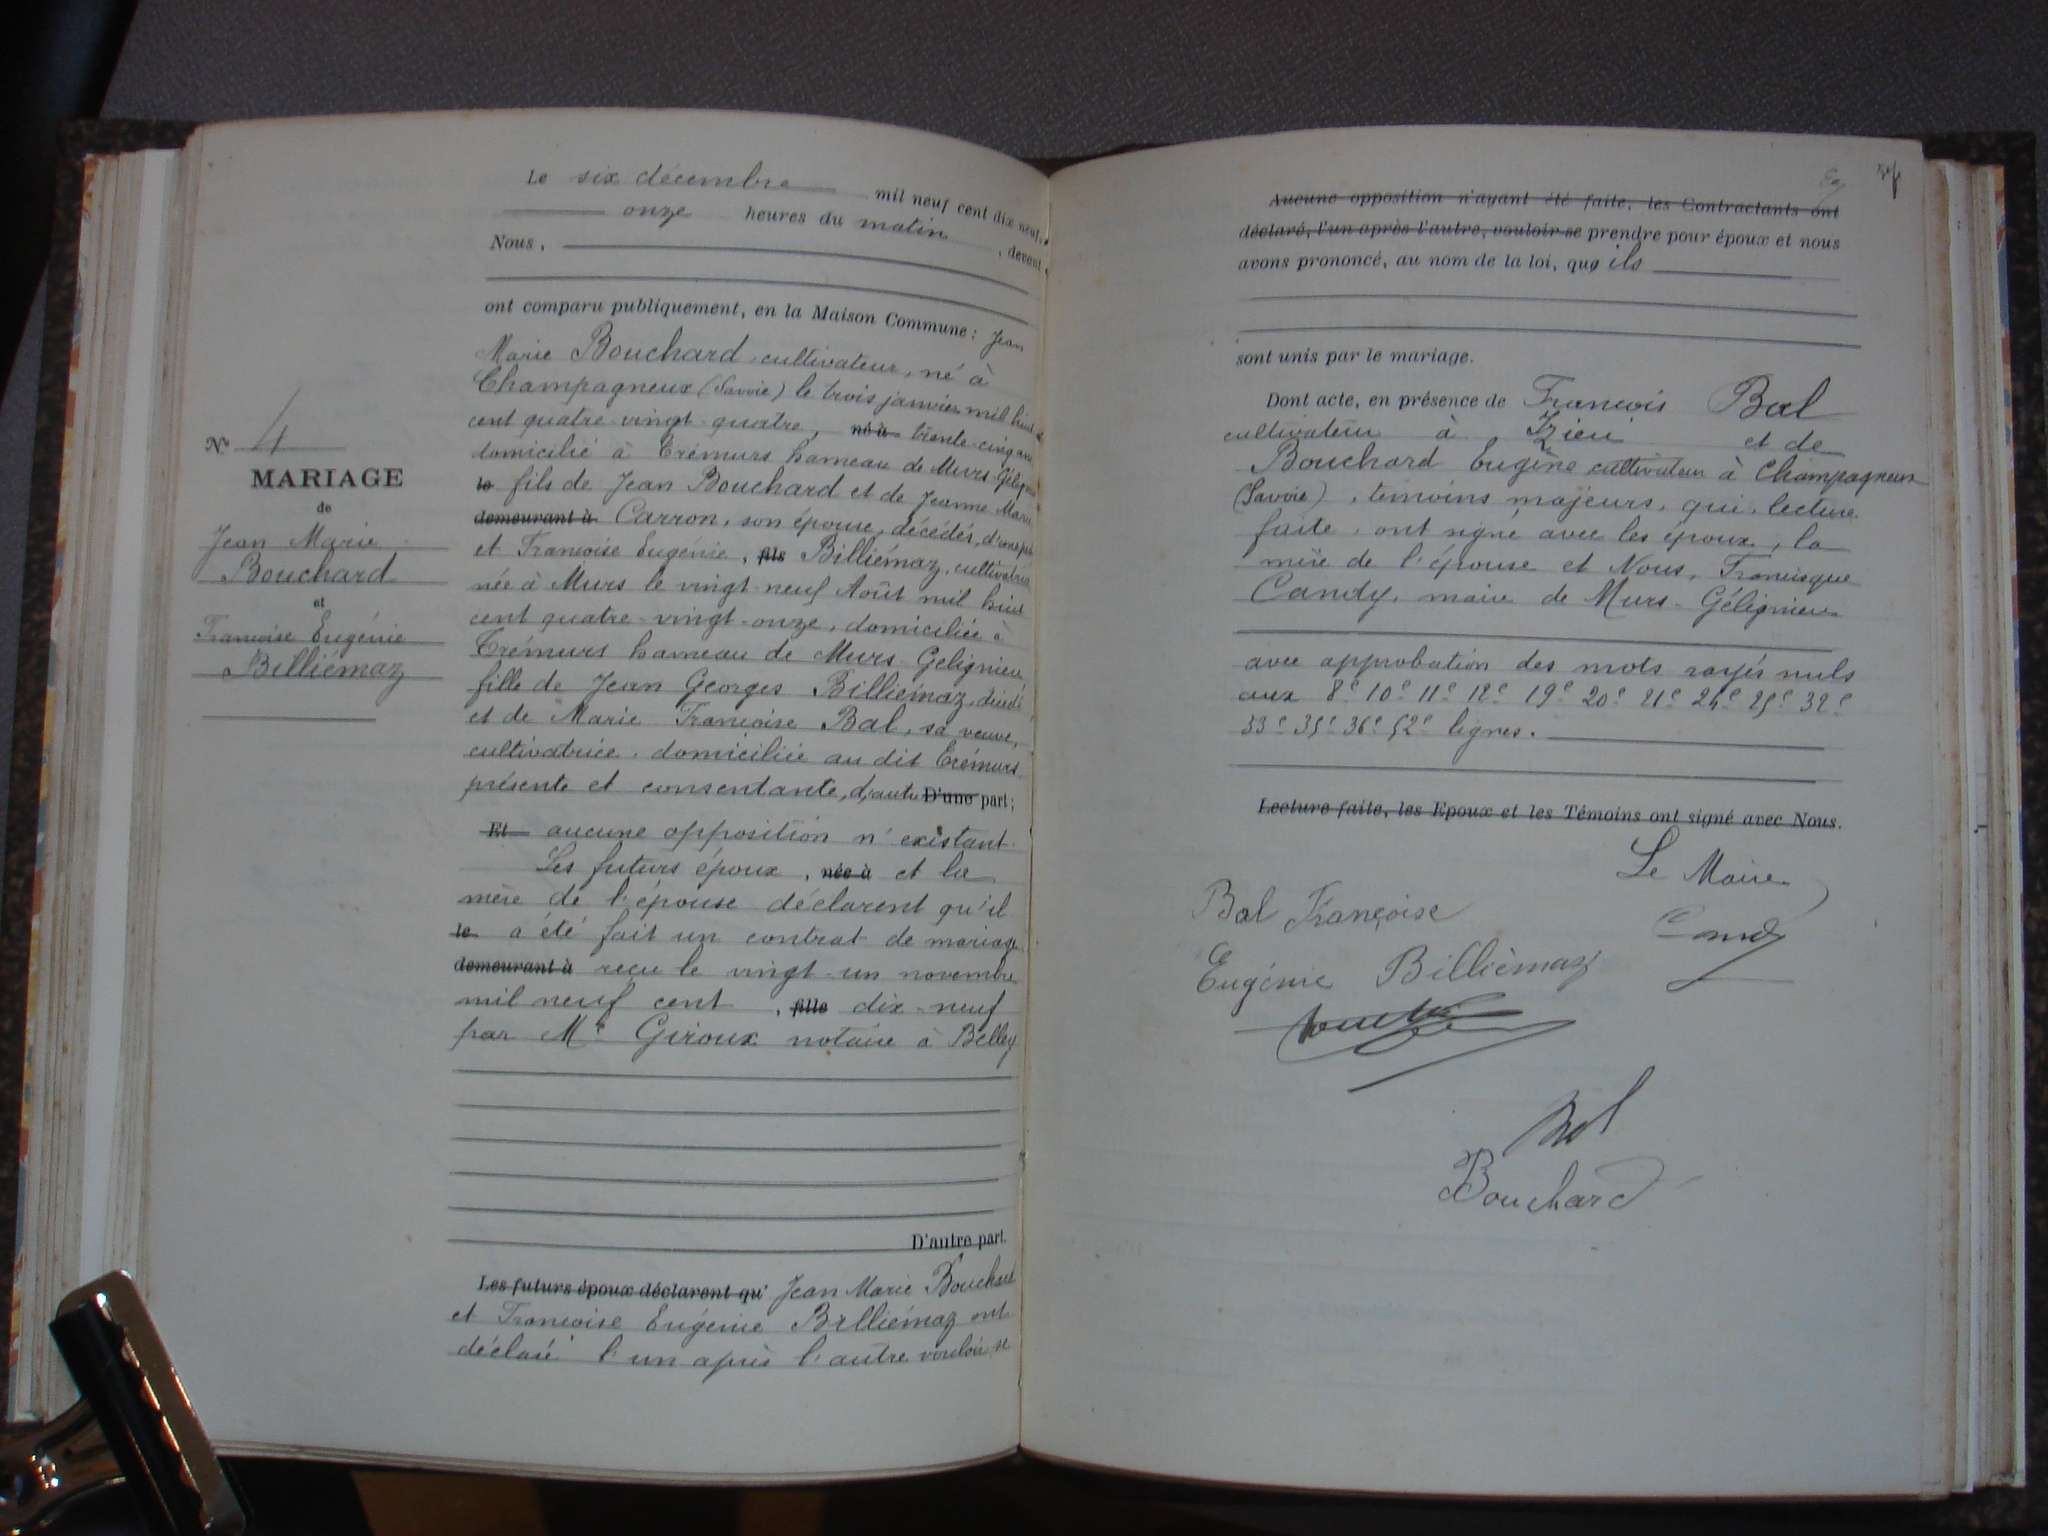 Le six décembre mil neuf cent dix neuf,
onze heures du matin, devant
Nous,
ont comparu publiquement, en la Maison Commune: Jean
Marie Bouchard cultivateur, né à
Champagneux (Savoie) le trois janvier mil huit
cent quatre-vingt-quatre, né à trente-cinq ans
domicilié à Crémurs hameau de Murs-Gélignieux
le fils de Jean Bouchard et de Jeanne Marie
demeurant à Carron, son épouse, décédés, d'une part
et Francoise Eugénie, fils Billiémaz, cultivatrice
née à Murs le vingt-neuf Août mil huit
cent quatre-vingt-onze, domiciliée à
Crémurs hameau de Murs-Gelignieu
fille de Jean Georges Billiémaz, décédé,
et de Marie Francoise Bal, sa veuve,
cultivatrice, domiciliée au dit Crémurs
présente et consentante, d'autre D'une part;
Et aucune opposition n'existant
Les futurs époux, née à et la
mère de l'épouse déclarent qu'il
le a été fait un contrat de mariage
demeurant à reçu le vingt-un novembre
mil neuf cent, fille dix-neuf
par Me Giroux notaire à Belley
D'autre part.
Les futurs époux déclarent qu' Jean Marie Bouchard
et Francoise Eugénie Billiémaz ont
déclaré l'un après l'autre vouloir se
No 4
MARIAGE
de
Jean Marie
Bouchard
et
Francoise Eugénie
Billiémaz
Aucune opposition n'ayant été faite, les Contractants ont
déclaré, l'un après l'autre, vouloir se prendre pour époux et nous
avons prononcé, au nom de la loi, que ils
sont unis par le mariage.
Dont acte, en présence de Francois Bal
cultivateur à Izieu et de
Bouchard Eugène cultivateur à Champagneux
(Savoie), témoins majeurs, qui, lecture
faite, ont signé avec les époux, la
mère de l'épouse et Nous, Francisque
Candy, maire de Murs-Gélignieu
avec approbation des mots rayés nuls
aux 8e 10e 11e 12e 19e 20e 21e 24e 25e 32e
33e 35e 36e 52e lignes.
Lecture faite, les Epoux et les Témoins ont signé avec Nous.
Le Maire
Bal Françoise
Candy
Eugénie Billièmaz
Bal
Bouchard